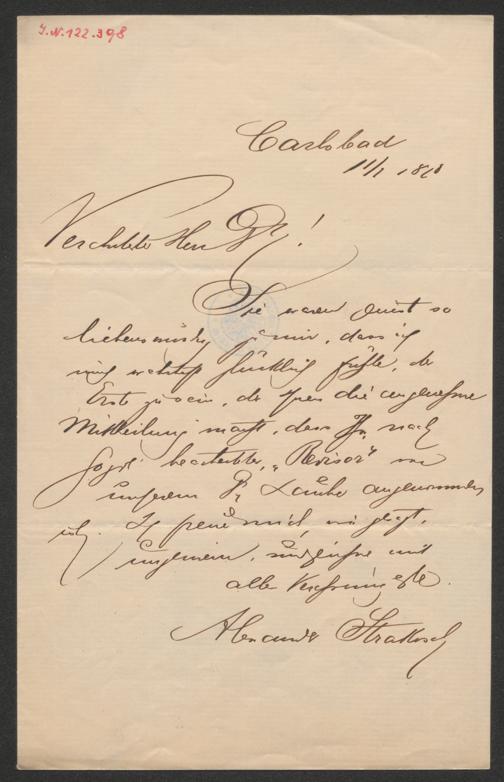 J.N. 122.398
Carlsbad
11/7 18
Verehrter Herr Dr!
Sie waren so
liebenswürdig zu mir, dass ich
mich glücklich fühle, der
Erste zu sein, der Ihnen die angenehme
Mittheilung macht, dass Ihr nach
Gogol bearbeiteter "Revisor" von
unserem Dr Laube angenommen
ist. Ich freue mich, wie gesagt,
ungemein, und zeichne mit
aller Verehrung
Alexander Strakosch